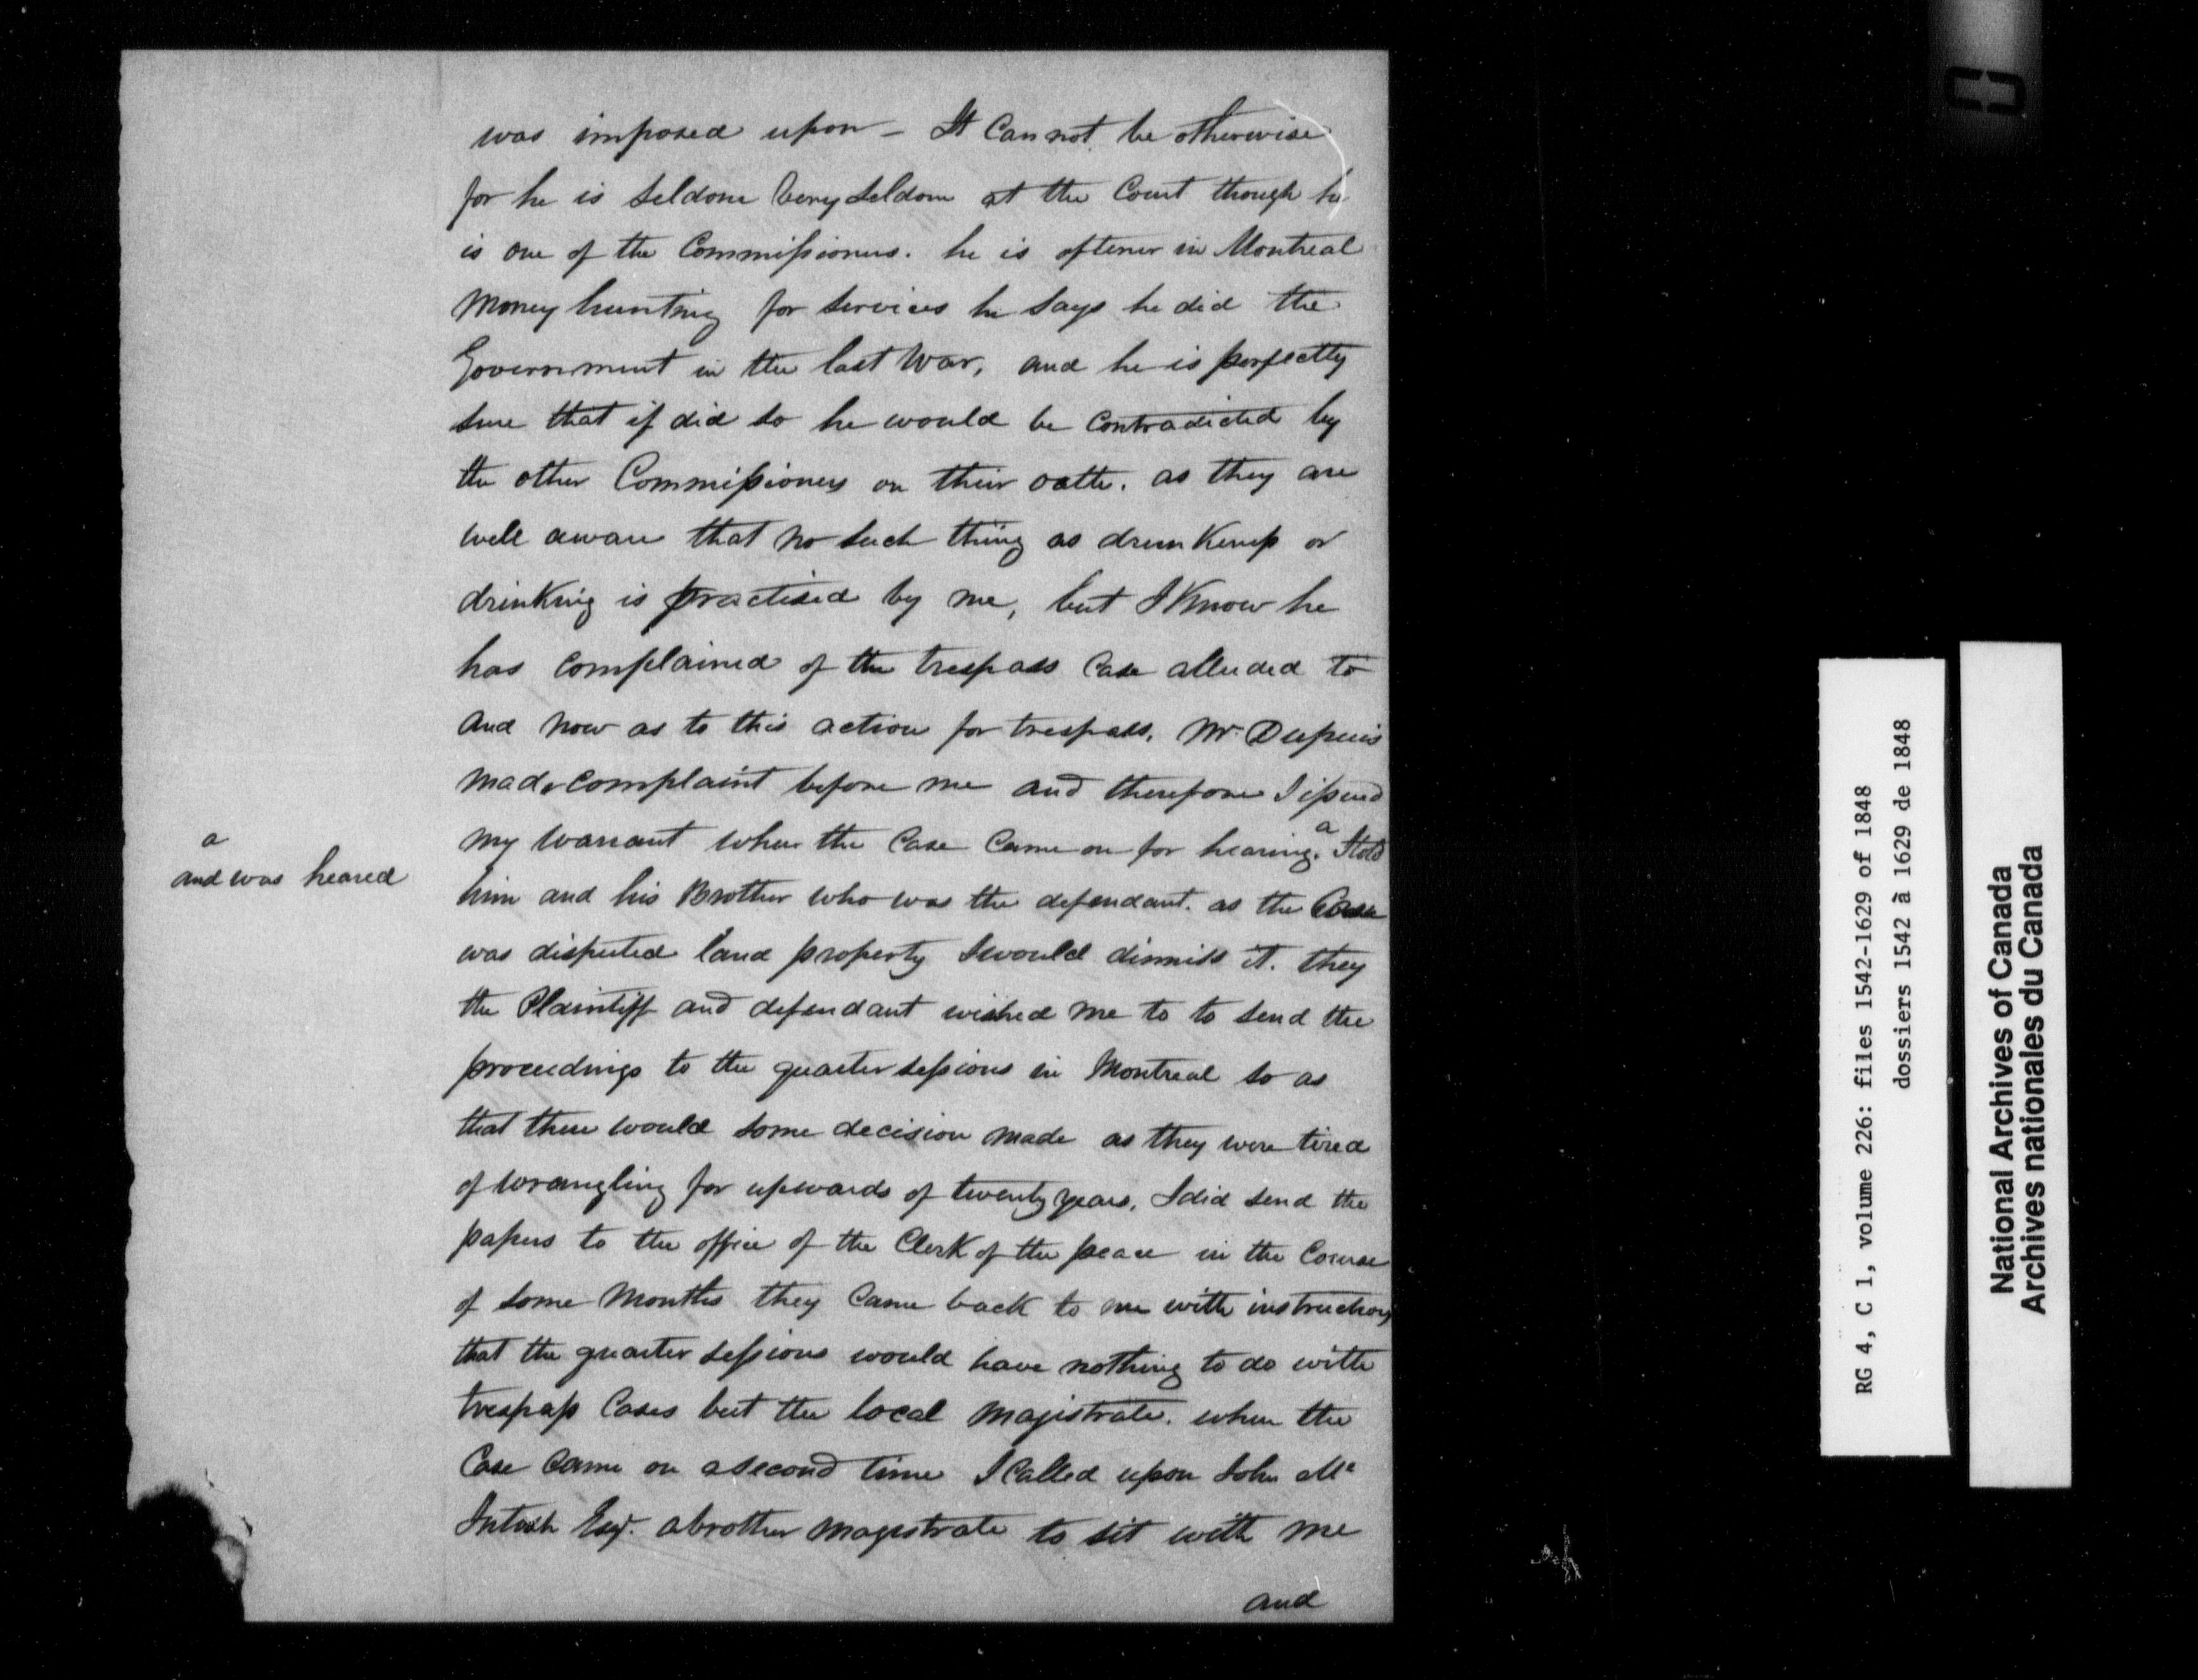 was imposed upon - It Cannot be otherwise
for he is seldom Very seldom at the Court though he
is one of the Commissioners. he is oftener in Montreal
Money hunting for services he says he did the
Government in the last War, and he is perfectly
sure that if did so he would be Contradicted by
the other Commissioners on their oath. as they are
well aware that no such thing as drunkenness or
drinking is practised by me, but I Know he
has Complained of the trespass Case alluded to
and now as to this action for trespass, Mr Dupuis
made complaint before me and therefore I issued
my Warrant when the Case Came on for hearing. a I told
a
and was heared
him and his Brother who was the defendant. as the Case
was disputed land property I would dismiss it. they
the Plaintiff and defendant wished me to to send the
proceedings to the quarter sessions in Montreal so as
that there would some decision made as they were tired
of wrangling for upwards of twenty years, I did send the
papers to the office of the Clerk of the peace in the Course
of some Months they Came back to me with instructions
that the quarter sessions would have nothing to do with
trespass Cases but the local Magistrate. when the
Case Came on a second time I Called upon John Mc
Intosh Esqr. a brother Magistrate to sit with me
and
RG 4, C 1, volume 226: files 1542-1629 of 1848
dossiers 1542 à 1629 de 1848
National Archives of Canada
Archives nationales du Canada